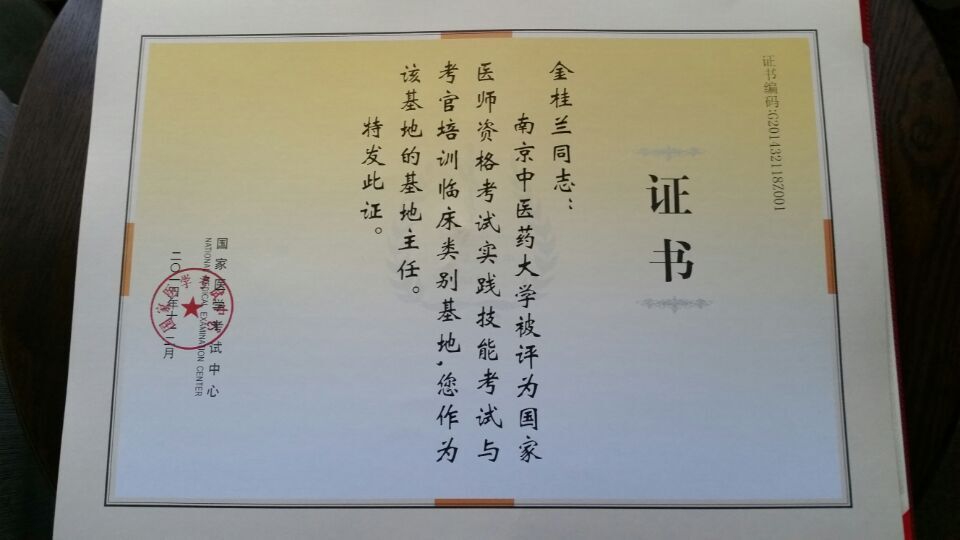 证书编码:G20143211SZ001
证书
金桂兰同志：
南京中医药大学被评为国家
医师资格考试实践技能考试与
考官培训临床类别基地，您作为
该基地的基地主任。
特发此证。
国家医学考试中心
NATIONAL MEDICAL EXAMINATION CENTER
二〇一四年十二月